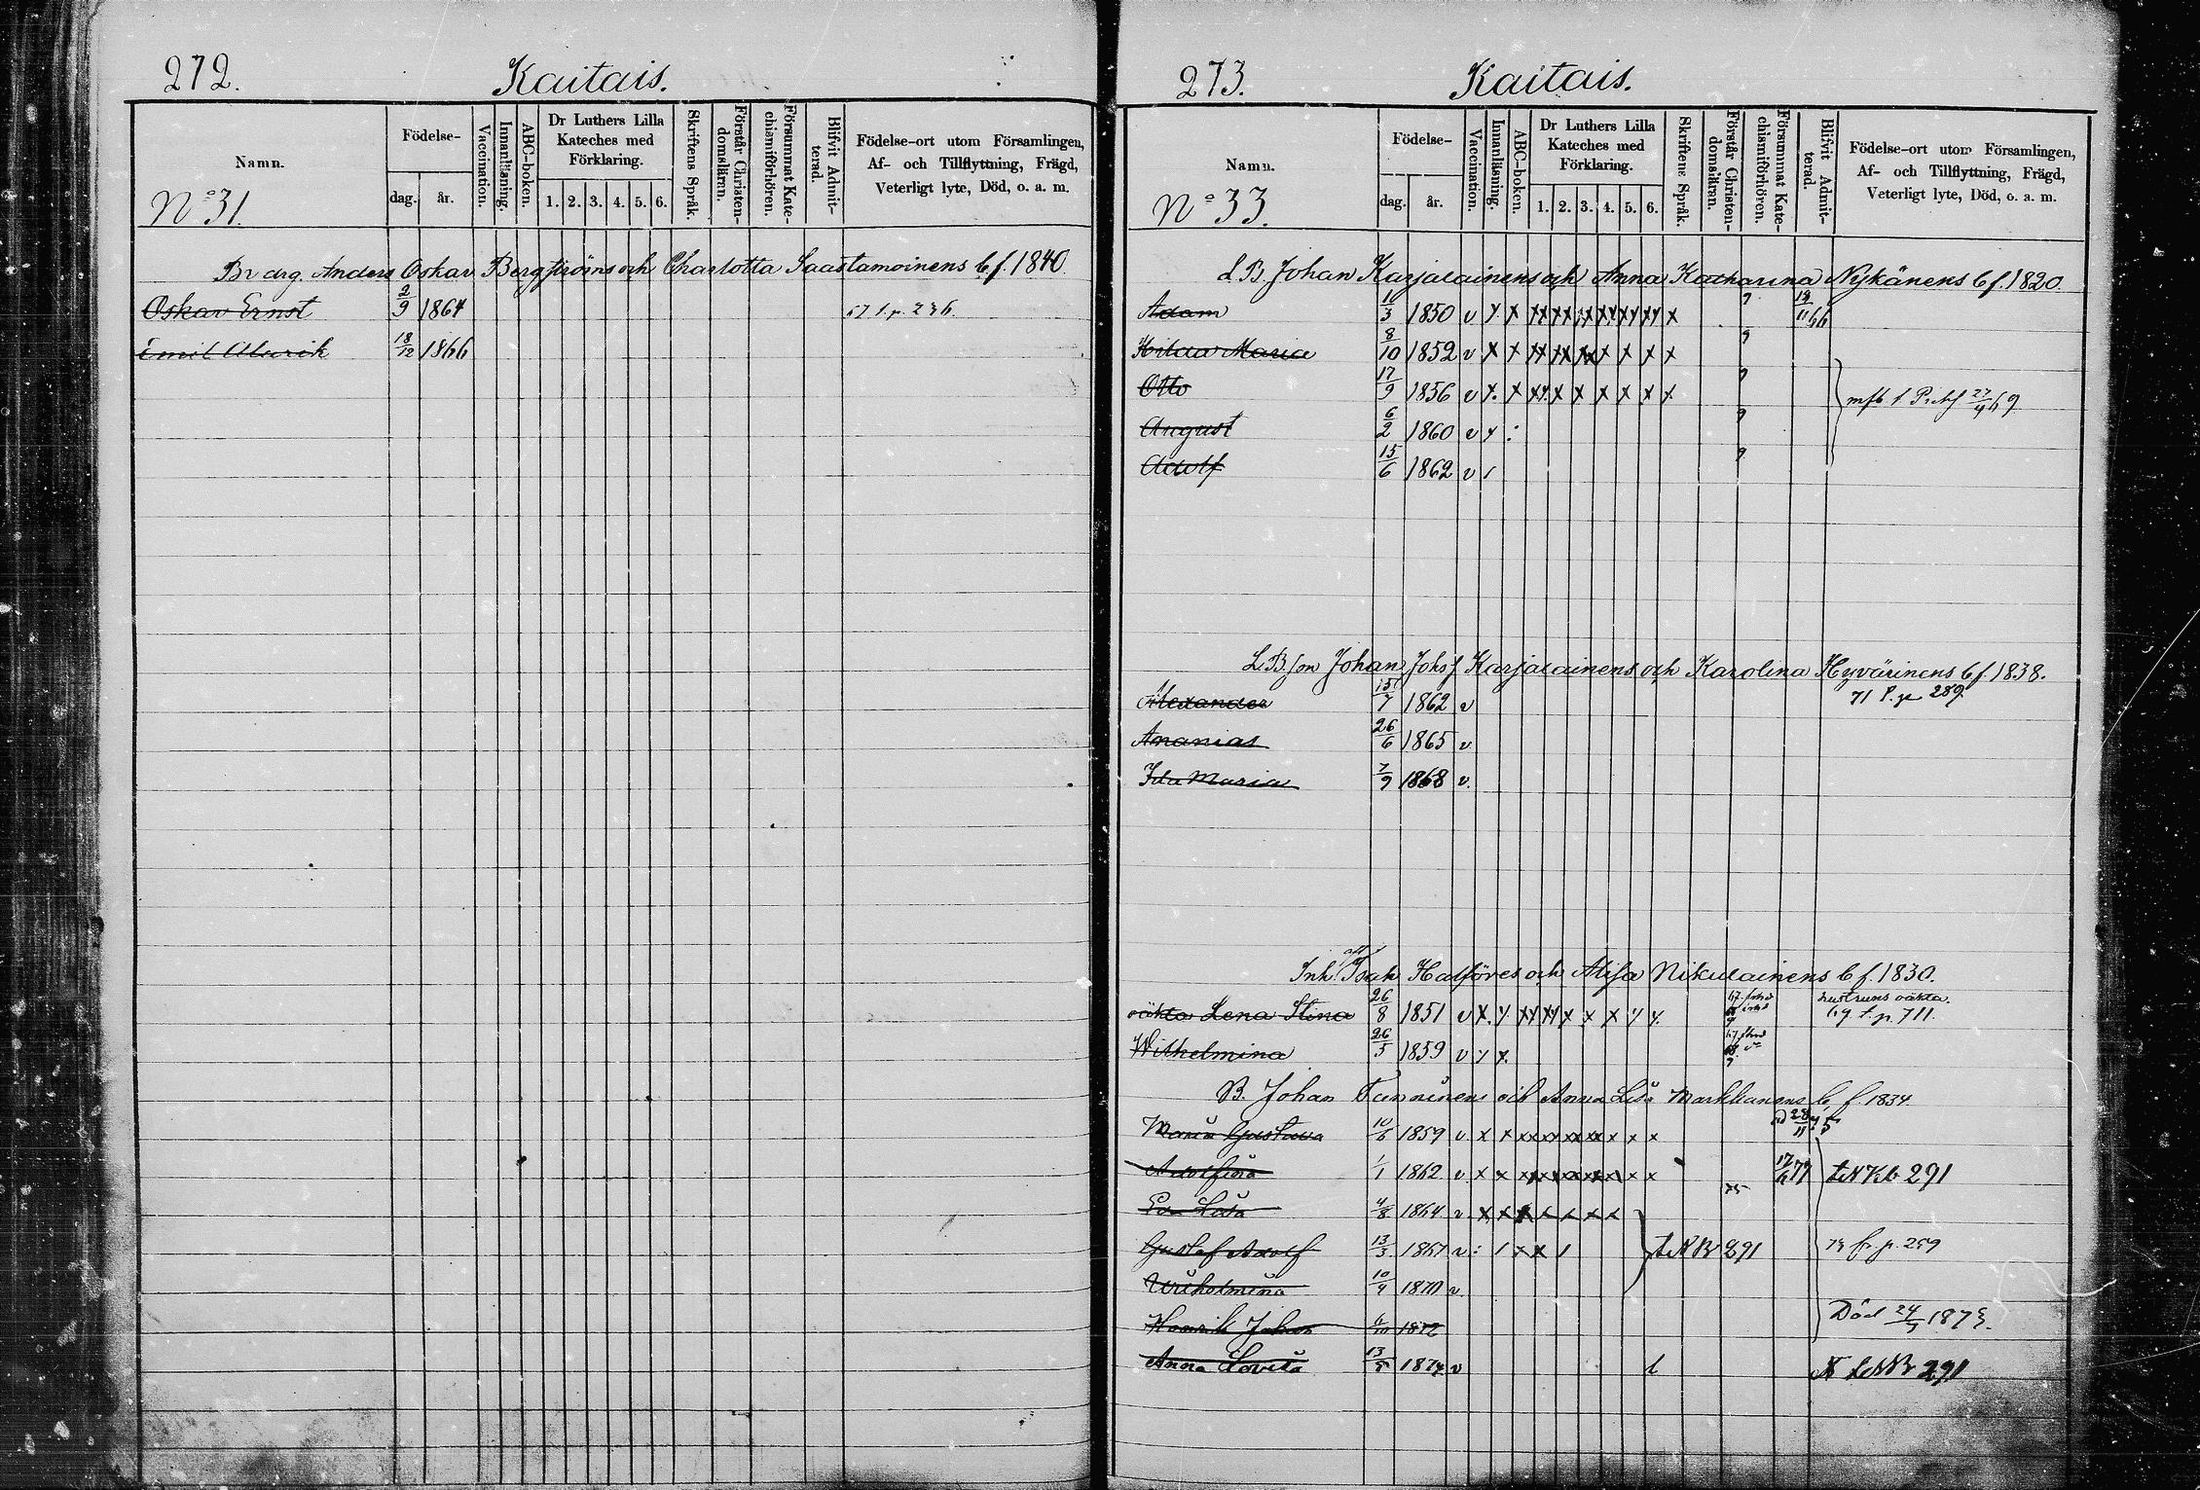 272.
Kaitais.
Namn.
Födelse-
dag.
år.
Vaccination.
Innanläsning.
ABC-boken.
Dr Luthers Lilla
Kateches med
Förklaring.
1. 2. 3. 4. 5. 6.
Skriftens Språk.
Förstår Christen-
domsläran.
Försummat Kate-
chismiförhören.
Blifvit Admit-
terad.
Födelse-ort utom Församlingen,
Af- och Tillflyttning, Frägd,
Veterligt lyte, Död, o. a. m.
No 31.
Anders Oskar Bergströms och Charlotta Saastamoinens b. f. 1840.
Oskar Ernst 2/9 1864 67 f. p. 236.
Emil Alarik 18/12 1866
273.
Kaitais.
Namn.
Födelse-
dag.
år.
Vaccination.
Innanläsning.
ABC-boken.
Dr Luthers Lilla
Kateches med
Förklaring.
1. 2. 3. 4. 5. 6.
Skriftens Språk.
Förstår Christen-
domsläran.
Försummat Kate-
chismiförhören.
Blifvit Admit-
terad.
Födelse-ort utom Församlingen,
Af- och Tillflyttning, Frägd,
Veterligt lyte, Död, o. a. m.
No 33.
L. B. Johan Karjalainens och Anna Katharina Nykänens b f. 1820.
Adam 1/3 1850 v
Hilda Maria 8/10 1852 v
Otto 17/9 1856 v
August 6/2 1860 v
Adolf 15/6 1862 v
L. B. son Johan Johs f Karjalainens och Karolina Hyvärinens b f. 1838.
71 f. p 289.
Alexander 15/7 1862 v
Ananias 26/6 1865 v
Ida Maria 7/9 1868 v.
Inh. Isak Halföres och Alisa Nikulainens b f. 1830.
oäkta Lena Stina 26/8 1851 v hustruns oäkta.
69 f. p. 711.
Wilhelmina 26/5 1859 v
B. Johan Tunninens och Anna Lisa Markkanens b. f. 1834.
Maria Gustava 10/6 1859 v
Adolfina 1/1 1862 v 291
Eva Lovisa 4/8 1864 v
Gustaf Adolf 13/3 1867 v 291 p. 259
Wilhelmina 10/4 1870 v
Henrik Johan 6/10 1872 Död 24/7 1873.
Anna Lovisa 13/5 1874 v 291